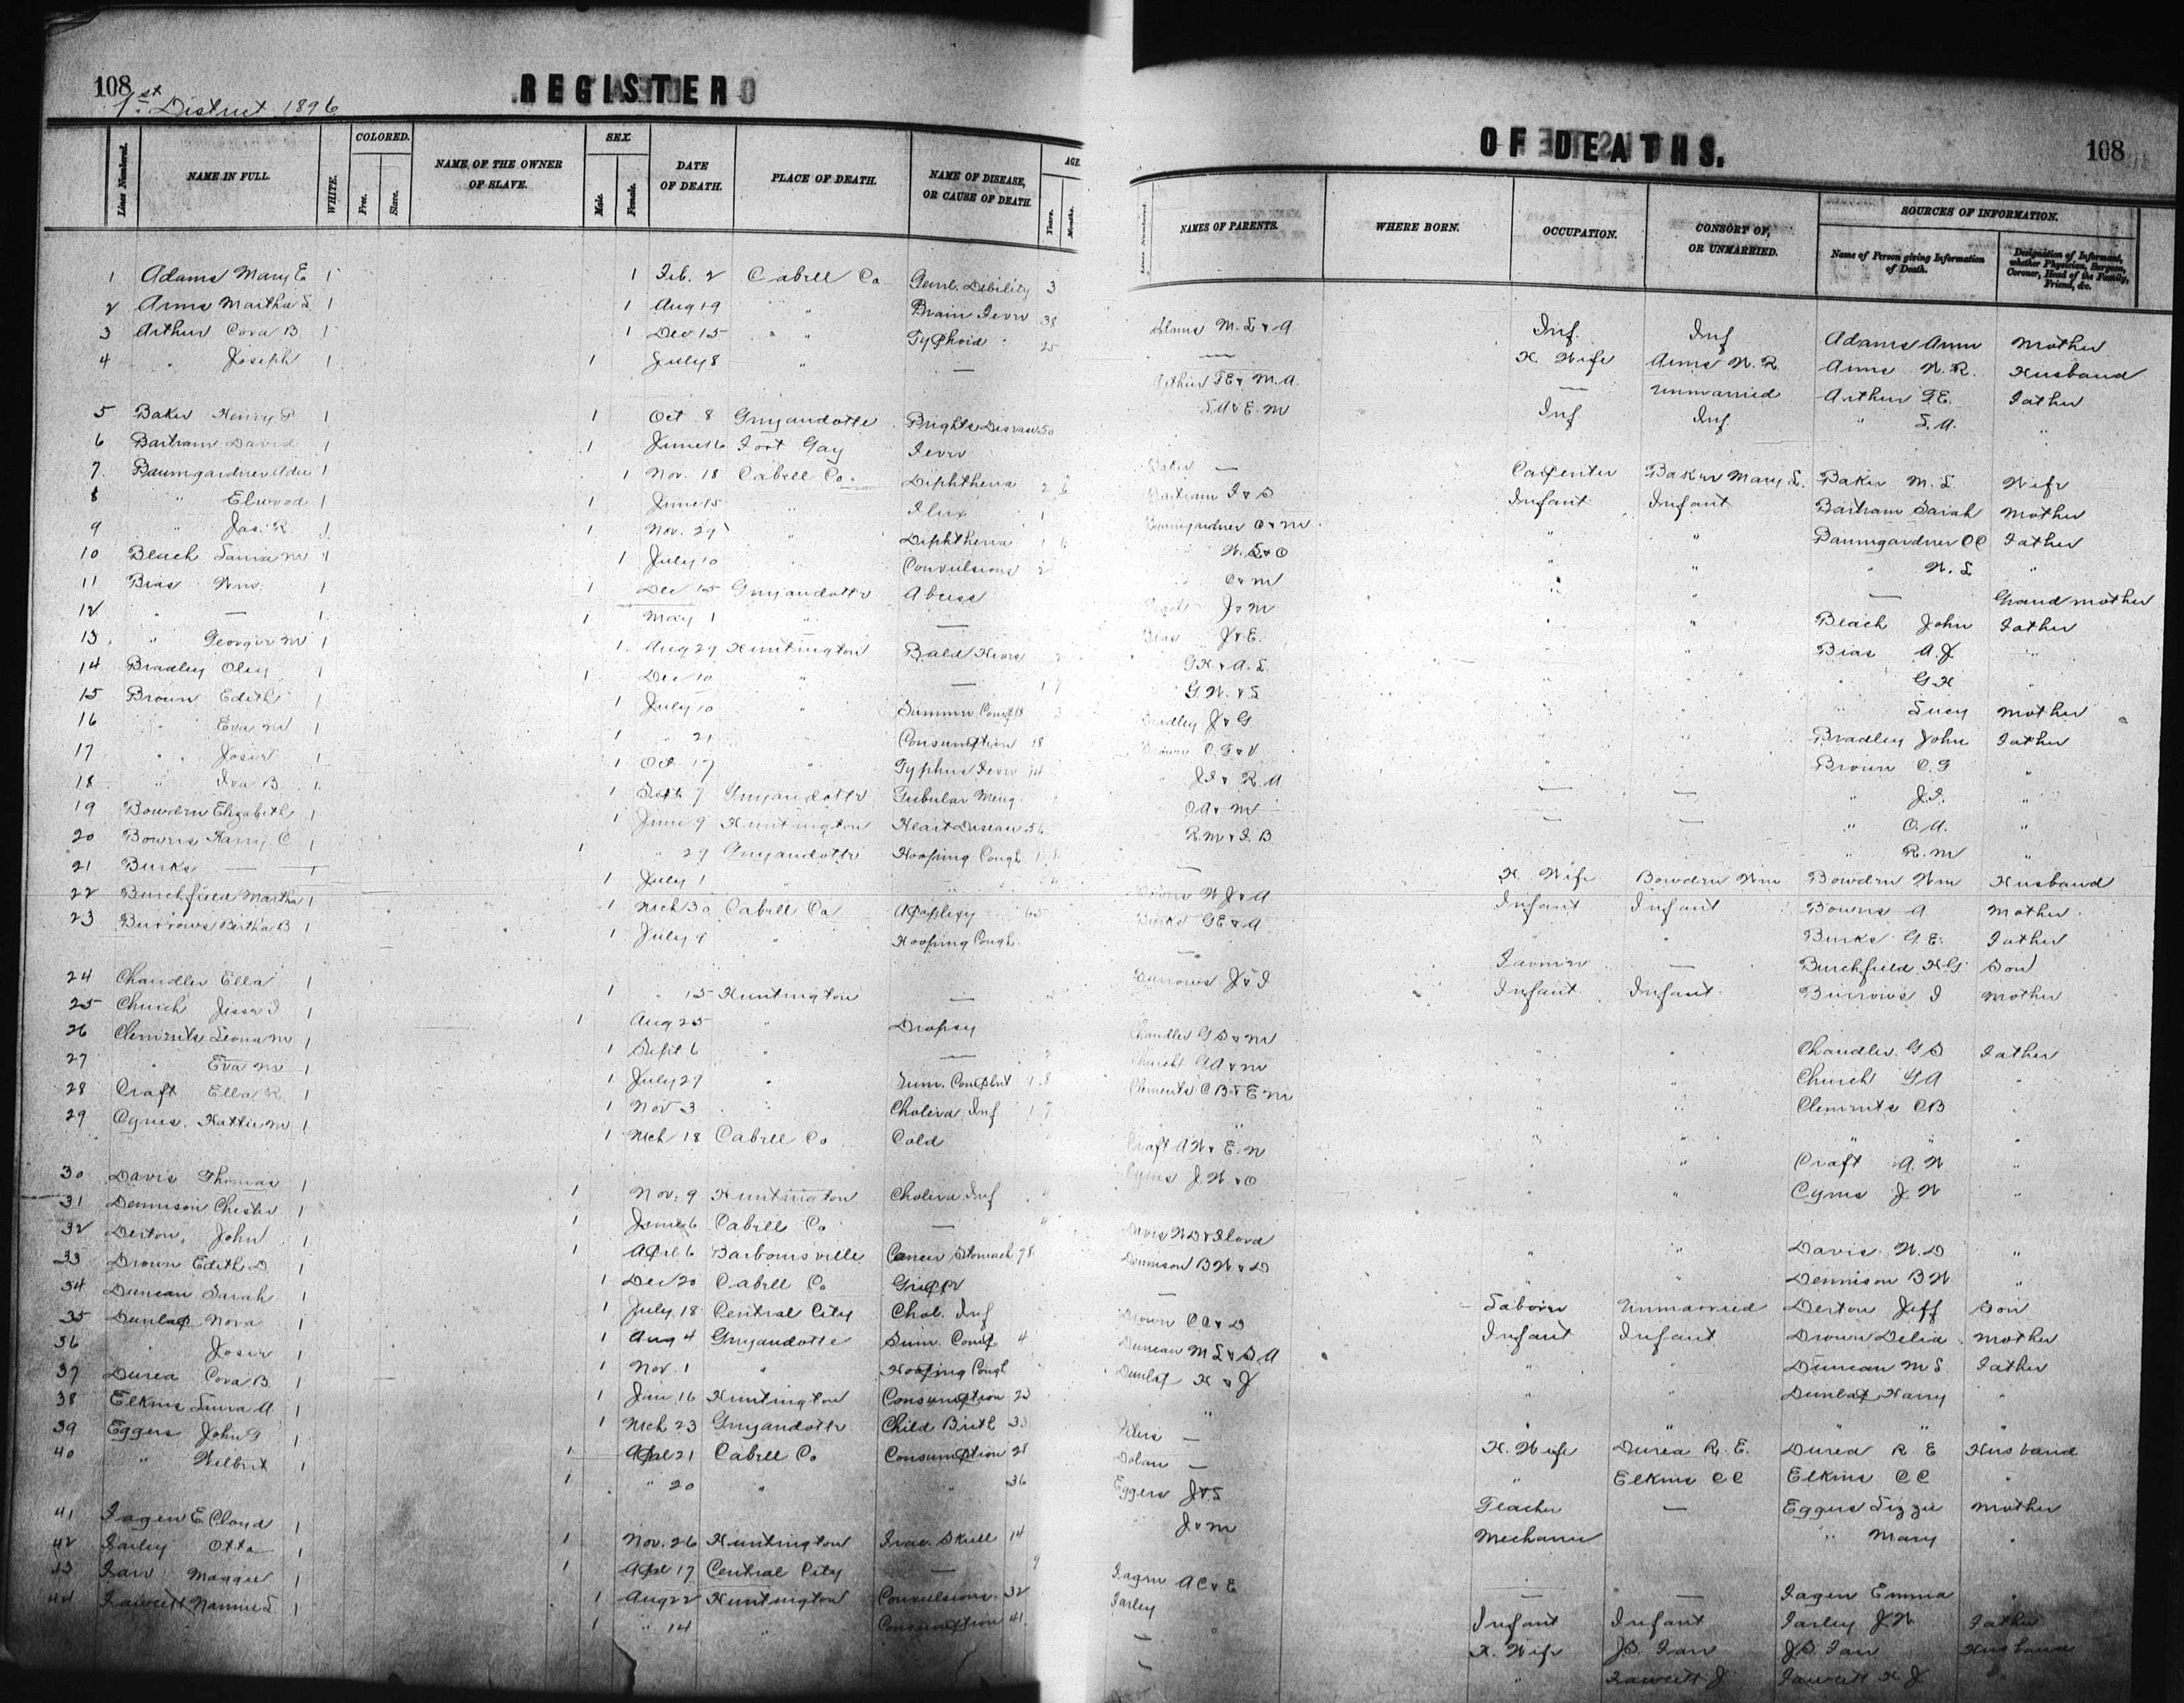 108
1st District 1896
REGISTER
LINES NUMBERED. NAME IN FULL. WHITE. COLORED. Free. Slave. NAME OF THE OWNER OF SLAVE. SEX. Male. Female. DATE OF DEATH. PLACE OF DEATH. NAME OF DISEASE, OR CAUSE OF DEATH. AGE. Years. Months.
1 Adams Mary E 1 1 Feb. 2 Cabell Co Genl. Debility 3
2 Arms Martha L 1 1 Aug 19 " Brain Fever 38
3 Arthur Cora B 1 1 Dec. 15 " " Typhoid " 25
4 " Joseph 1 1 July 8 " —
5 Baker Henry 1 1 Oct 8 Guyandotte Brights Disease 50
6 Bartram David 1 1 June 16 Fort Gay Fever
7 Baumgardner 1 1 Nov. 18 Cabell Co. Diphtheria 2
8 " Elwood 1 1 June 15 " Flux 1
9 " Jas. R 1 1 Nov. 29 " Diphtheria 1
10 Beach Laura M 1 1 July 10 Convulsions 2
11 Bias Wm. 1 1 Dec 15 Guyandotte Abuss
12 " — 1 1 May 1 " —
13 " Georgie M 1 1 Aug 29 Huntington Bald Hives
14 Bradley Oley 1 1 Dec 10 " —
15 Brown Edith 1 1 July 10 " Summer Complt
16 " Eva M 1 1 " 21 Consumption 18
17 " Josie 1 1 Oct 17 " Typhus Fever 14
18 " Iva B. 1 1 Sept 7 Guyandotte Tubular Meng.
19 Bowden Elizabeth 1 1 June 9 Huntington Heart Disease 56
20 Bowers Harry C 1 1 " 29 Guyandotte Hooping Cough 1
21 Burks — 1 1 July 1
22 Burchfield Martha 1 1 Mch 30 Cabell Co Apoplexy 65
23 Burrows Bertha B 1 1 July 9 " Hooping Cough
24 Chandler Ella 1 1 " 15 Huntington —
25 Church Jesse 1 1 Aug 25 " Dropsy
26 Clements Leona M 1 1 Sept 6 " —
27 " Eva M 1 1 July 29 " Sum. Complnt 1
28 Craft Ella R. 1 1 Nov 3 " Cholera Inf 1
29 Cyrus. Hattie M 1 1 Mch 18 Cabell Co Cold
30 Davis Thomas 1 1 Nov. 9 Huntington Cholera Inf
31 Dennison Chester 1 1 June 6 Cabell Co —
32 Derton, John 1 1 Aprl 6 Barboursville Cancer Stomach 78
33 Drown Edith D 1 1 Dec 20 Cabell Co Grippe
34 Duncan Sarah 1 1 July 18 Central City Chol. Inf
35 Dunlap Nora 1 1 Aug 4 Guyandotte Sum. Comp 4
36 " Josie 1 1 Nov. 1 " Hooping Cough
37 Durea Cora B 1 1 Jan 16 Huntington Consumption 23
38 Elkins Laura A 1 1 Mch 23 Guyandotte Child Birth 33
39 Eggers John 1 1 Aprl 21 Cabell Co Consumption 28
40 " Wilbrit 1 1 " 20 " " 36
41 Fagen E Cloud 1 1 Nov. 26 Huntington Frac. Skull 14
42 Farley Otto 1 1 Aprl 17 Central City — 9
43 Farr Maggie 1 1 Aug 22 Huntington Convulsions 32
44 Fawcett Nannie L 1 1 " 14 " Consumption 41
OF DEATHS.
108
Lines Numbered. NAMES OF PARENTS. WHERE BORN. OCCUPATION. CONSORT OF, OR UNMARRIED. SOURCES OF INFORMATION. Name of Person giving Information of Death. Designation of Informant, whether Physician, Surgeon, Coroner, Head of the Family, Friend, &c.
Adams M. L & A Inf. Inf Adams Ann Mother
— H. Wife Arms W. R. Arms W. R. Husband
Arthur F E & M. A. — Unmarried Arthur F E. Father
L. A & E. M Inf Inf " L. A. "
Baker — Carpenter Baker Mary L. Baker M. L Wife
Bartram & S Infant Infant Bartram Sarah Mother
Baumgardner C & M " " Baumgardner C C Father
W. L & O " " " W. L "
C & M " " — Grand mother
J & M " " Beach John Father
Bias J & E. " " Bias A. J "
G H & A. L. " " " G. H "
G. W. & L " " " Lucy Mother
Bradley J & G " " Bradley John Father
Brown C. F & V " " Brown C. F "
" J. F & R. A — — " J. F. "
O A & M — — " O. A. "
R. M & I. B " R. M "
— H. Wife Bowden Wm Bowden Wm Husband
Bowers W J & A Infant Infant Bowers A Mother
Burks G E & A " " Burks G. E. Father
— Farmer — Burchfield H G Son
Burrows J & I Infant Infant Burrows I Mother
Chandler G S & M " " Chandler G S Father
Church G A & M " " Church G A "
Clements C B & E M " " Clements C B "
" " " " " "
Craft A W & E. N " " Craft A. W "
Cyrus J. W & O " " Cyrus J. W "
Davis W D & Flora " " Davis W. D "
Dennison B W & D " " Dennison B W "
— Laborer Unmarried Derton Jeff Son
Drown C. A & D Infant Infant Drown Delia Mother
Duncan M L & S A " " Duncan M L Father
Dunlap H & J " " Dunlap Harry "
" " " " "
— H. Wife Durea R. E. Durea R E Husband
Dolan — " Elkins C C Elkins C C "
Eggers J & L Teacher — Eggers Lizzie Mother
J & M Mechanic " Mary "
Fagen A C & E — — Fagen Emma "
Farley Infant Infant Farley J W Father
— H. Wife J. S. Farr J. S. Farr Husband
— " Fawcett J Fawcett H J "